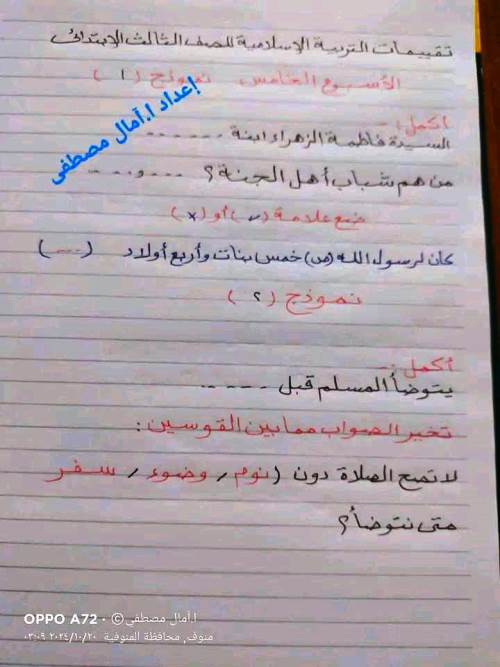 تقييمات التربية الإسلامية للصف الثالث الابتدائى
الأسبوع الخامس نموذج (١)
إعداد ا.آمال مصطفى
أكمل :-
السيدة فاطمة الزهراء ابنة ......
من هم شباب أهل الجنة؟ .... و....
ضع علامة (✓) أو (×)
كان لرسول الله (ص) خمس بنات وأربع أولاد (....)
نموذج (٢)
أكمل :-
يتوضأ المسلم قبل .....
تخير الصواب مما بين القوسين :
لا تصح الصلاة دون (نوم / وضوء / سفر
متى نتوضأ؟
OPPO A72 · © ا.آمال مصطفى
منوف, محافظة المنوفية ٢٠٢٤/١٠/٢٠ ٠٣:٠٩